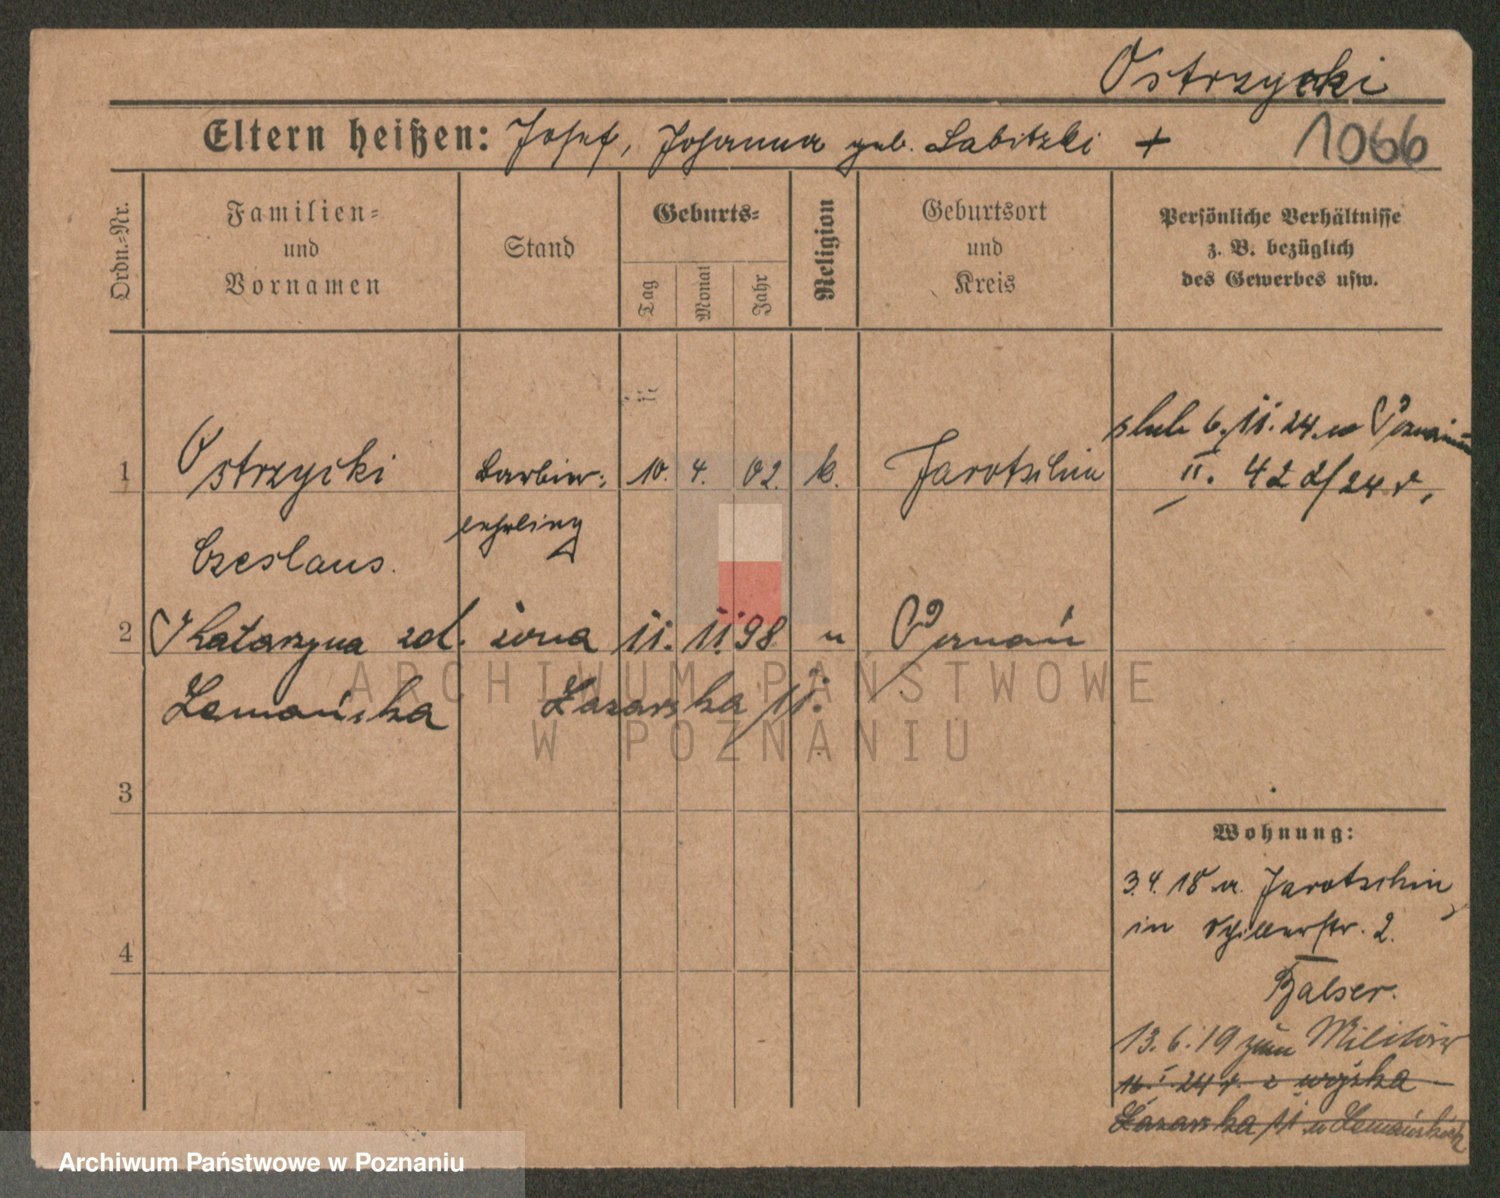 Ostrzycki
Eltern heißen: Josef, Johanna geb. Labitzki +
1066
Ordn.-Nr.
Familien-
und
Vornamen
Stand
Geburts-
Tag
Monat
Jahr
Religion
Geburtsort
und
Kreis
Persönliche Verhältnisse
z. B. bezüglich
des Gewerbes usw.
1 Ostrzycki Barbier- 10. 4. 02. k. Jarotschin
lehrling
Czeslaus.
ślub 6. 11. 24. w Poznaniu
II. 422/24 r.
2 Katarzyna zd. żona 11. 11. 98 " Poznań
Łemańska Łazarska 11.
3
4
Wohnung:
3.4.18 v. Jarotschin
in Schillerstr. 2.
Balser.
13.6.19 zum Militär
16. I. 24 r. z wojska
Łazarska 11 u
ARCHIWUM PAŃSTWOWE
W POZNANIU
Archiwum Państwowe w Poznaniu